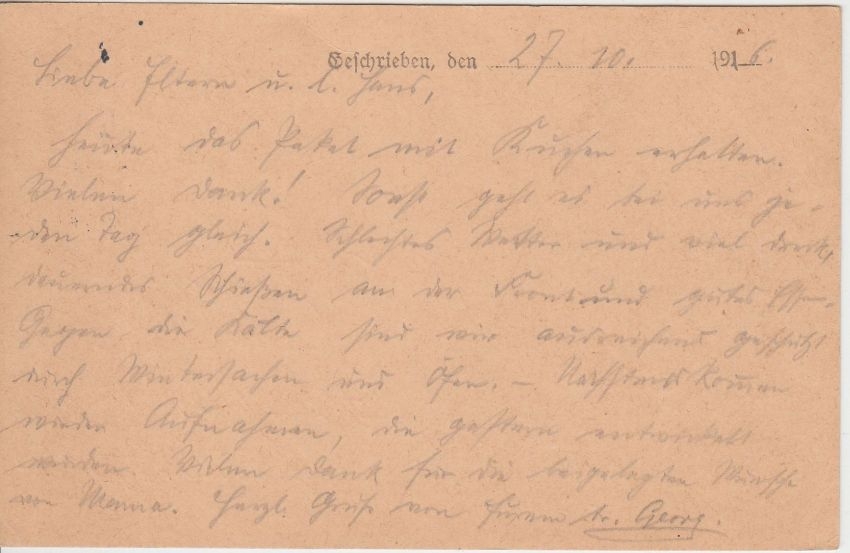 Geschrieben, den 27. 10. 1916.
Liebe Eltern u. l. Hans,
heute das Paket mit Kuchen erhalten.
Vielen Dank! Sonst geht es bei uns je-
den Tag gleich. Schlechtes Wetter und viel Dreck,
dauerndes Schießen an der Front und gutes Essen.
Gegen die Kälte sind wir ausreichend geschützt
durch Wintersachen und Öfen. – Nächstens kommen
wieder Aufnahmen, die gestern entwickelt
wurden. Vielen Dank für die beigelegten Wünsche
von Mama. Herzl. Gruß von Eurem tr. Georg.